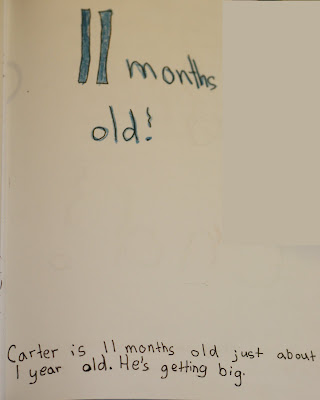 11 months
old!
Carter is 11 months old just about
1 year old. He's getting big.